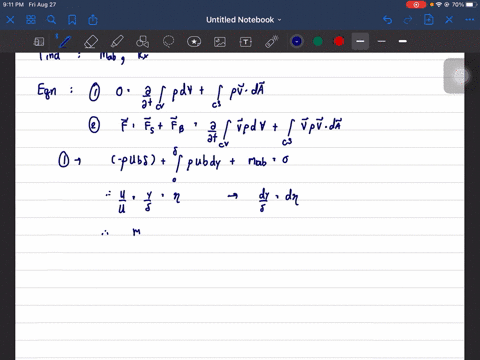 9:11 PM Fri Aug 27
70%
Untitled Notebook
Find : Mab, Rx
Eqn : ① 0 = ∂/∂t ∫CV ρdV + ∫CS ρV⃗·dA⃗
② F⃗ = F⃗s + F⃗B = ∂/∂t ∫CV V⃗ρdV + ∫CS V⃗ρV⃗·dA⃗
① → (-ρUbδ) + ∫₀^δ ρubdy + mab = 0
∴ u/U = y/δ = η → dy/δ = dη
∴ M